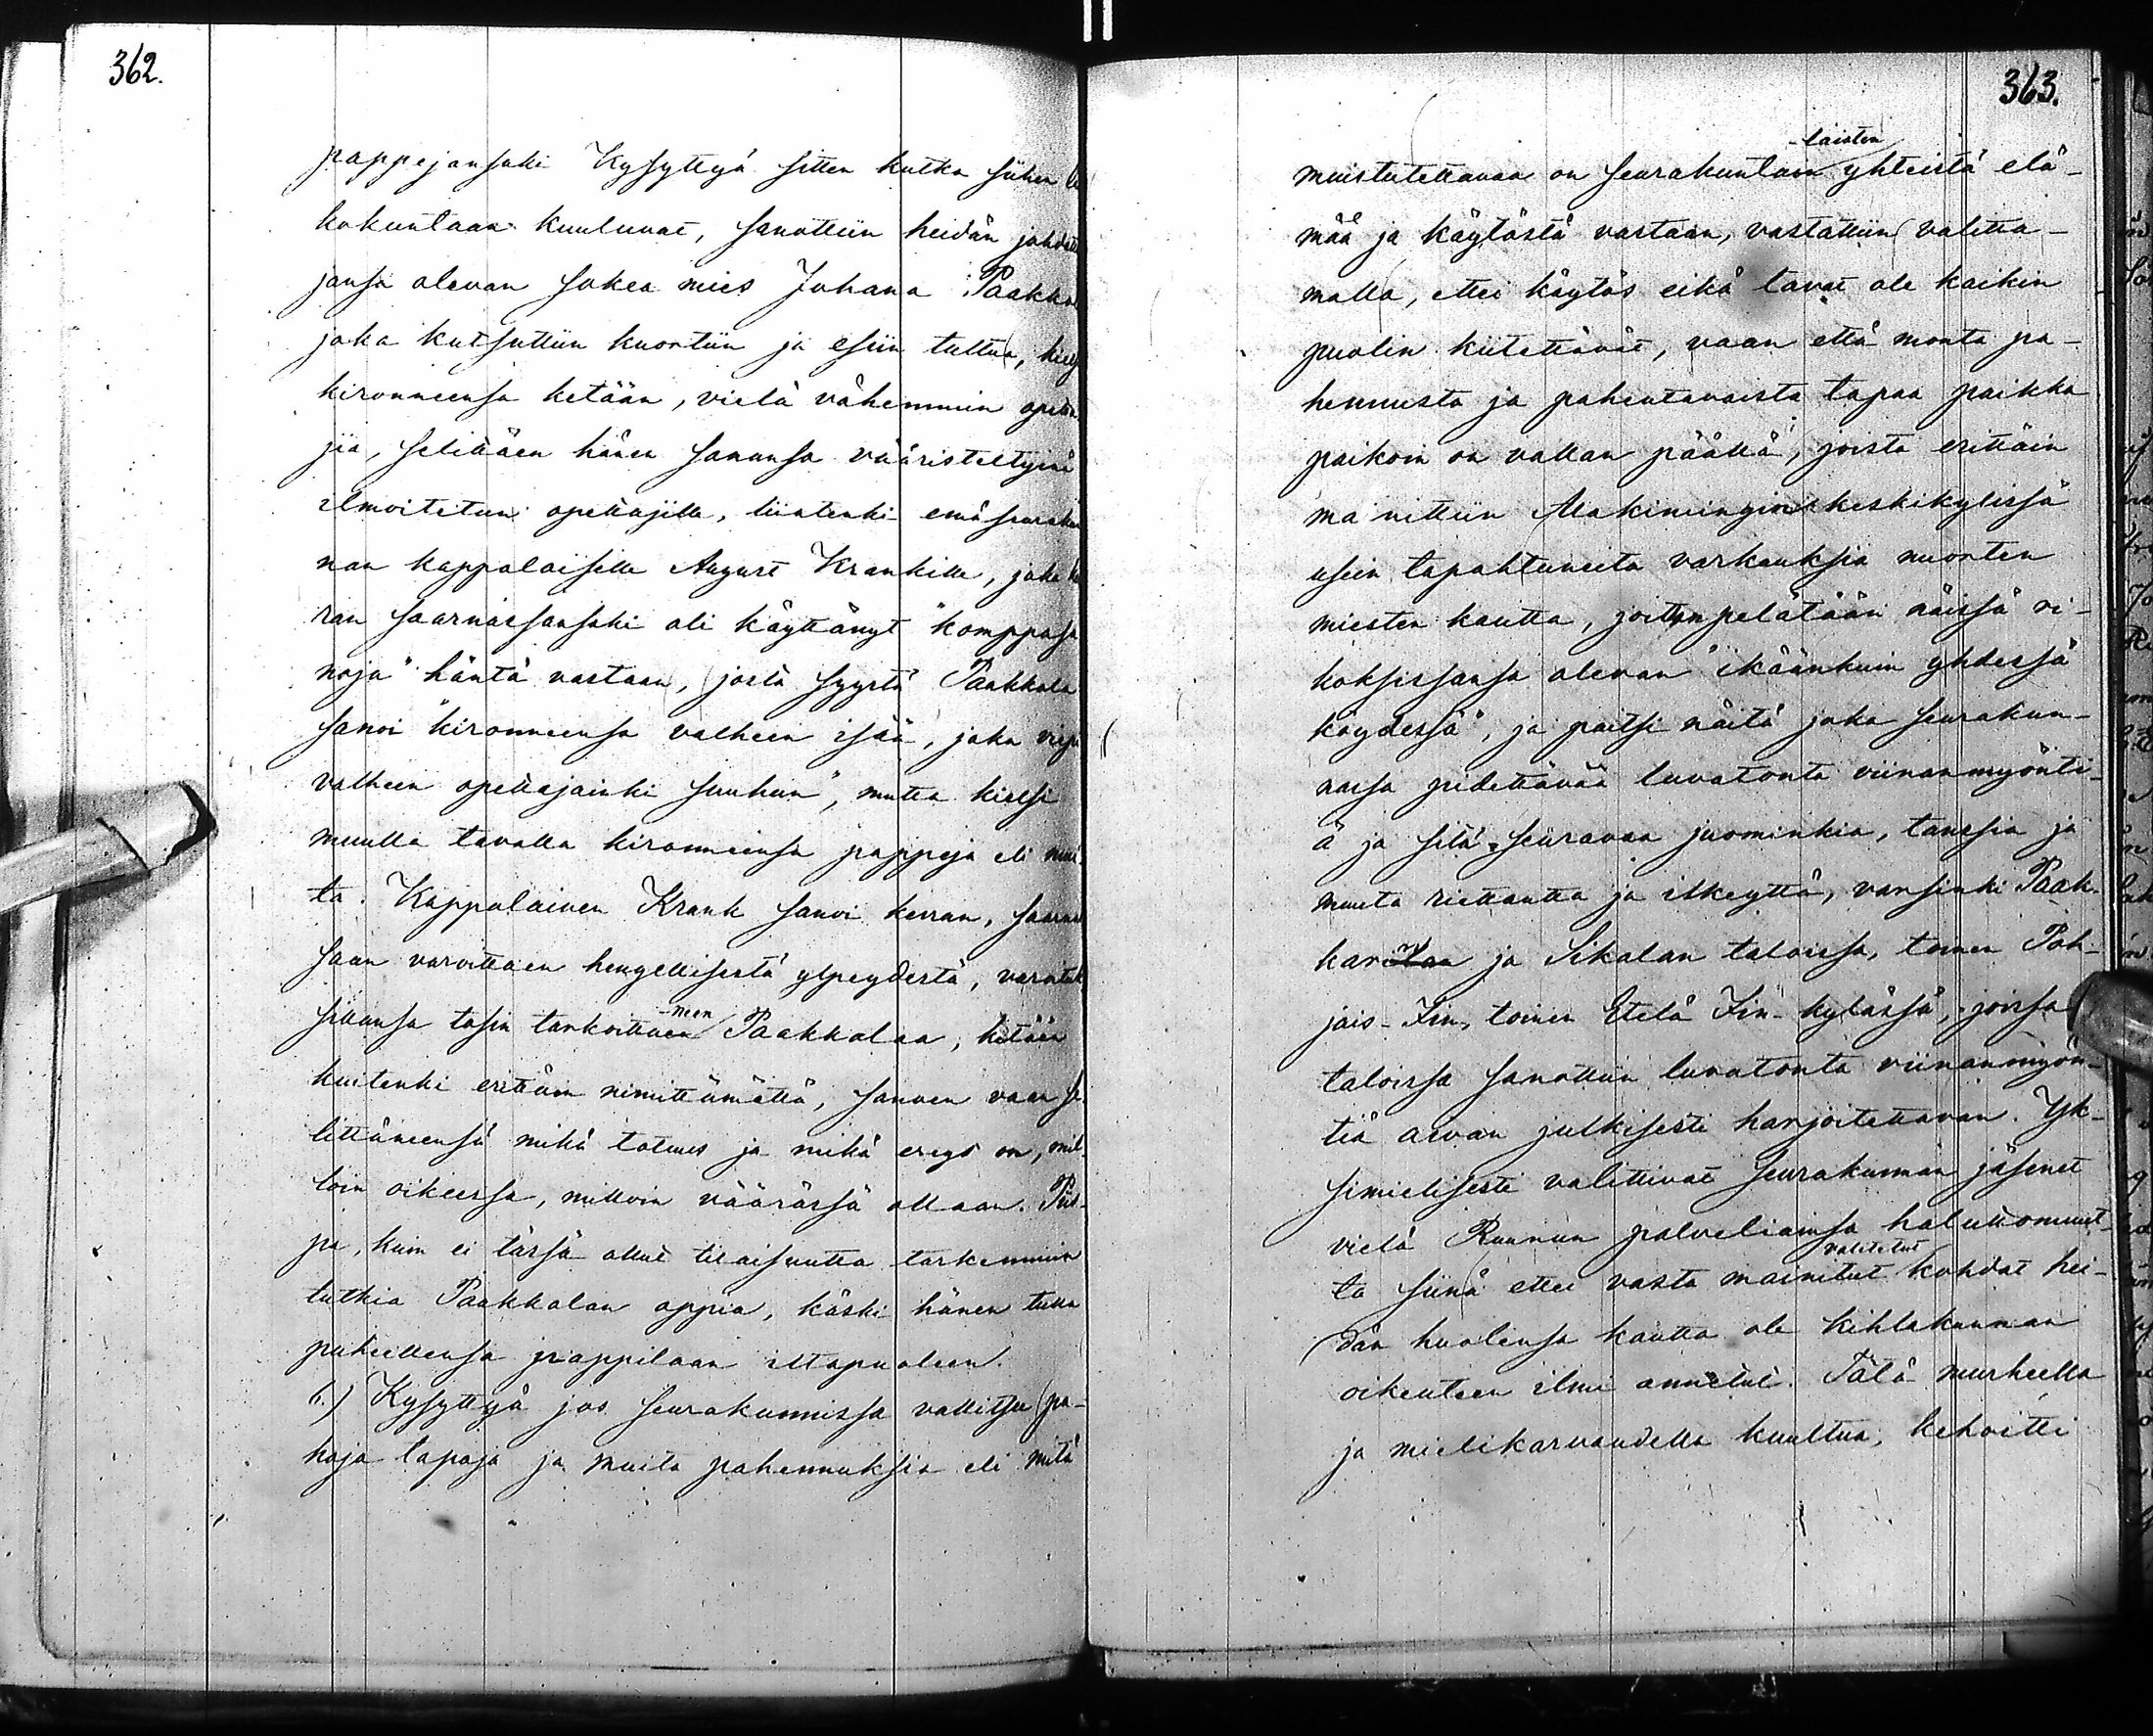 362.
pappejansaki Kysyttyä sitten kutka siihen
kokuntaan kuuluvat, sanottiin heidän johdatta
jansa olevan sokea mies Juhana Paakkola
joka kutsuttiin kuoriin ja esiin tultua, kielsi
kironneensa ketään, vielä vähemmin opetta
jia, selittäen hänen sanansa vääristeltyinä
ilmoitetun opettajille, liiatenki emäseurakun
nan kappalaiselle August Krankille, joka
ran saarnassansaki oli käyttänyt "komppasa
noja" häntä vastaan, josta syystä Paakkola
sanoi "kironneensa valheen isää, joka
valheen opettajainki suuhun", mutta kielsi
muulla tavalla kironneensa pappeja eli mui-
ta. Kappalainen Krank sanoi kerran, saarnas
saan varoittaen hengellisestä ylpeydestä, varoituk
sillansa tosin tarkoittaen -neen Paakkolaa, ketään
kuitenki erittäin nimittämättä, sanoen vaan se-
littäneensä mikä totuus ja mikä erys on, mil-
loin oikeessa, milloin väärässä ollaan. Piis-
pa, kuin ei tässä ollut tilaisuutta tarkemmin
tutkia Paakkolan oppia, käski hänen tulla
puheillensa pappilaan iltapuoleen.
6.) Kysyttyä jos seurakunnissa vallitsee pa-
hoja tapoja ja muita pahennuksia eli mitä
363.
-laisten
muistutettavaa on seurakuntain yhteistä elä-
mää ja käytöstä vastaan, vastattiin valitta-
malla, ettei käytös eikä tavat ole kaikin
puolin kiitettävät, vaan että monta pa-
hennusta ja pahentavaista tapaa paikka
paikoin on vallan päällä, joista erittäin
mainittiin Alakiimingin keskikylissä
usein tapahtuneita varkauksia nuorten
miesten kautta, joitten pelätään näissä ri-
koksissansa olevan "ikäänkuin yhdessä
köydessä", ja paitsi näitä joka seurakun-
nassa pidettävää luvatonta viinanmyönti-
ä ja sitä seuraavaa juominkia, tanssia ja
muuta riettautta ja ilkeyttä, varsinki Paak-
karilan ja Sikalan taloissa, toinen Poh-
jais-Iin, toinen Etelä Iin-kylässä, joissa
taloissa sanottiin luvatonta viinanmyön-
tiä aivan julkisesti harjoitettavan. Yk-
simielisesti valittivat seurakunnan jäsenet
vielä Ruunun palveliainsa haluttomuut-
valitetut
ta siinä ettei vasta mainitut kohdat hei-
dän huolensa kautta ole kihlakunnan
oikeuteen ilmi annetut. Tätä murheella
ja mielikarvaudella kuultua, kehoitti